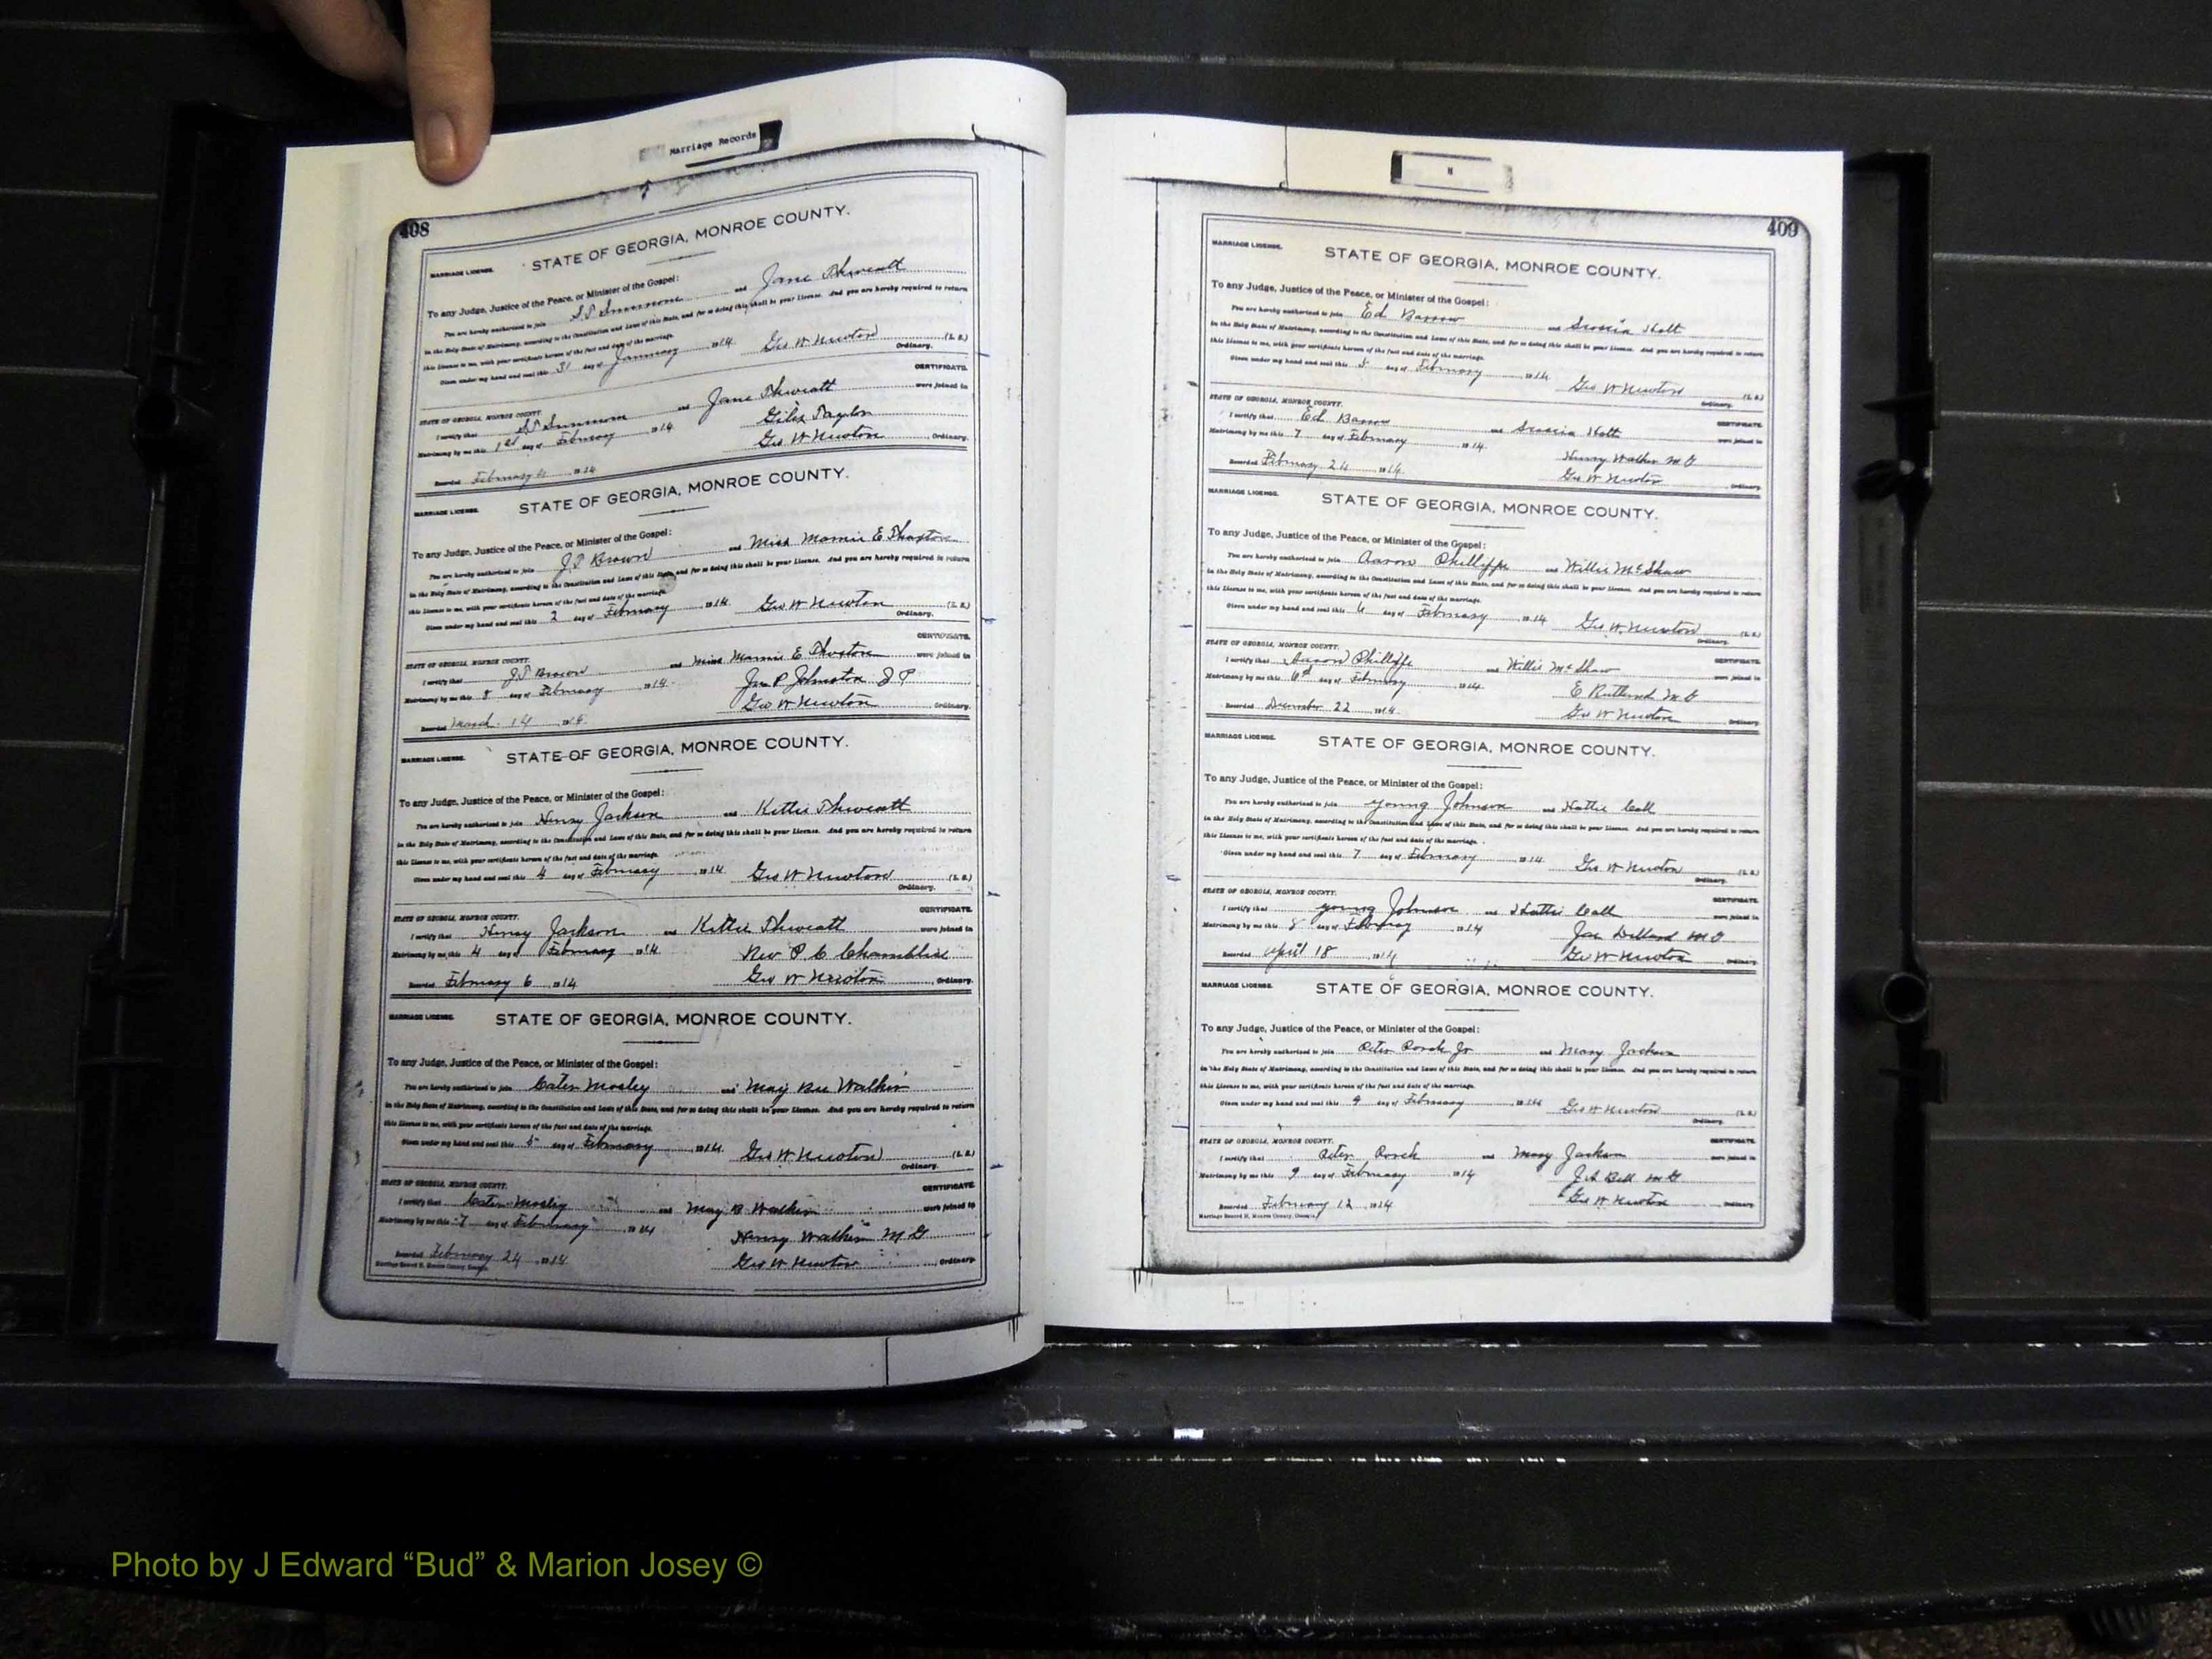 Marriage Records
408
MARRIAGE LICENSE.
STATE OF GEORGIA, MONROE COUNTY.
To any Judge, Justice of the Peace, or Minister of the Gospel:
You are hereby authorized to join and Jane Thweatt
in the Holy State of Matrimony, according to the Constitution and Laws of this State, and for so doing this shall be your License. And you are hereby required to return
this License to me, with your certificate hereon of the fact and date of the marriage.
Given under my hand and seal this 31 day of January 1914. Geo W Newton (L. S.)
Ordinary.
STATE OF GEORGIA, MONROE COUNTY. CERTIFICATE.
I certify that and Jane Thweatt were joined in
Matrimony by me this 1st day of February 1914. Giles Taylor
Geo W Newton, Ordinary.
Recorded February 4 1914
MARRIAGE LICENSE.
STATE OF GEORGIA, MONROE COUNTY.
To any Judge, Justice of the Peace, or Minister of the Gospel:
You are hereby authorized to join Brown and Miss Mamie E
in the Holy State of Matrimony, according to the Constitution and Laws of this State, and for so doing this shall be your License. And you are hereby required to return
this License to me, with your certificate hereon of the fact and date of the marriage.
Given under my hand and seal this 2 day of February 1914. Geo W Newton (L. S.)
Ordinary.
STATE OF GEORGIA, MONROE COUNTY. CERTIFICATE.
I certify that Brown and Miss Mamie E were joined in
Matrimony by me this 8 day of February 1914. Jno P Johnston J P
Geo W Newton, Ordinary.
Recorded March 14 1914.
MARRIAGE LICENSE.
STATE OF GEORGIA, MONROE COUNTY.
To any Judge, Justice of the Peace, or Minister of the Gospel:
You are hereby authorized to join Henry Jackson and Kittie Thweatt
in the Holy State of Matrimony, according to the Constitution and Laws of this State, and for so doing this shall be your License. And you are hereby required to return
this License to me, with your certificate hereon of the fact and date of the marriage.
Given under my hand and seal this 4 day of February 1914. Geo W Newton (L. S.)
Ordinary.
STATE OF GEORGIA, MONROE COUNTY. CERTIFICATE.
I certify that Henry Jackson and Kittie Thweatt were joined in
Matrimony by me this 4 day of February 1914. Rev P C Chambliss
Geo W Newton, Ordinary.
Recorded February 6 1914
MARRIAGE LICENSE.
STATE OF GEORGIA, MONROE COUNTY.
To any Judge, Justice of the Peace, or Minister of the Gospel:
You are hereby authorized to join Cater Mosley and May Bee Walker
in the Holy State of Matrimony, according to the Constitution and Laws of this State, and for so doing this shall be your License. And you are hereby required to return
this License to me, with your certificate hereon of the fact and date of the marriage.
Given under my hand and seal this 5 day of February 1914. Geo W Newton (L. S.)
Ordinary.
STATE OF GEORGIA, MONROE COUNTY. CERTIFICATE.
I certify that Cater Mosley and May B Walker were joined in
Matrimony by me this 7 day of February 1914 Henry Walker M G
Geo W Newton, Ordinary.
Recorded February 24 1914
Marriage Record H, Monroe County, Georgia.
H
409
MARRIAGE LICENSE.
STATE OF GEORGIA, MONROE COUNTY.
To any Judge, Justice of the Peace, or Minister of the Gospel:
You are hereby authorized to join Ed Barrow and Holt
in the Holy State of Matrimony, according to the Constitution and Laws of this State, and for so doing this shall be your License. And you are hereby required to return
this License to me, with your certificate hereon of the fact and date of the marriage.
Given under my hand and seal this 5 day of February 1914. Geo W Newton (L. S.)
Ordinary.
STATE OF GEORGIA, MONROE COUNTY. CERTIFICATE.
I certify that Ed Barrow and Holt were joined in
Matrimony by me this 7 day of February 1914. Henry Walker M G
Recorded February 24 1914. Geo W Newton, Ordinary.
MARRIAGE LICENSE.
STATE OF GEORGIA, MONROE COUNTY.
To any Judge, Justice of the Peace, or Minister of the Gospel:
You are hereby authorized to join Aaron Phillips and Willie McShaw
in the Holy State of Matrimony, according to the Constitution and Laws of this State, and for so doing this shall be your License. And you are hereby required to return
this License to me, with your certificate hereon of the fact and date of the marriage.
Given under my hand and seal this 6 day of February 1914 Geo W. Newton (L. S.)
Ordinary.
STATE OF GEORGIA, MONROE COUNTY. CERTIFICATE.
I certify that Aaron Phillips and Willie McShaw were joined in
Matrimony by me this 6th day of February 1914. E Rutherford M G
Recorded December 22 1914. Geo W Newton, Ordinary.
MARRIAGE LICENSE.
STATE OF GEORGIA, MONROE COUNTY.
To any Judge, Justice of the Peace, or Minister of the Gospel:
You are hereby authorized to join Young Johnson and Hattie Call
in the Holy State of Matrimony, according to the Constitution and Laws of this State, and for so doing this shall be your License. And you are hereby required to return
this License to me, with your certificate hereon of the fact and date of the marriage.
Given under my hand and seal this 7 day of February 1914. Geo W Newton (L. S.)
Ordinary.
STATE OF GEORGIA, MONROE COUNTY. CERTIFICATE.
I certify that Young Johnson and Hattie Call were joined in
Matrimony by me this 8 day of February 1914 Jas Dillard M G
Recorded April 18 1914 Geo W Newton, Ordinary.
MARRIAGE LICENSE.
STATE OF GEORGIA, MONROE COUNTY.
To any Judge, Justice of the Peace, or Minister of the Gospel:
You are hereby authorized to join Peter Jr and Mary Jackson
in the Holy State of Matrimony, according to the Constitution and Laws of this State, and for so doing this shall be your License. And you are hereby required to return
this License to me, with your certificate hereon of the fact and date of the marriage.
Given under my hand and seal this 9 day of February 1914 Geo W Newton (L. S.)
Ordinary.
STATE OF GEORGIA, MONROE COUNTY. CERTIFICATE.
I certify that Peter and Mary Jackson were joined in
Matrimony by me this 9 day of February 1914 J A Bell M G
Recorded February 12 1914 Geo W Newton, Ordinary.
Marriage Record H, Monroe County, Georgia.
Photo by J Edward “Bud” & Marion Josey ©